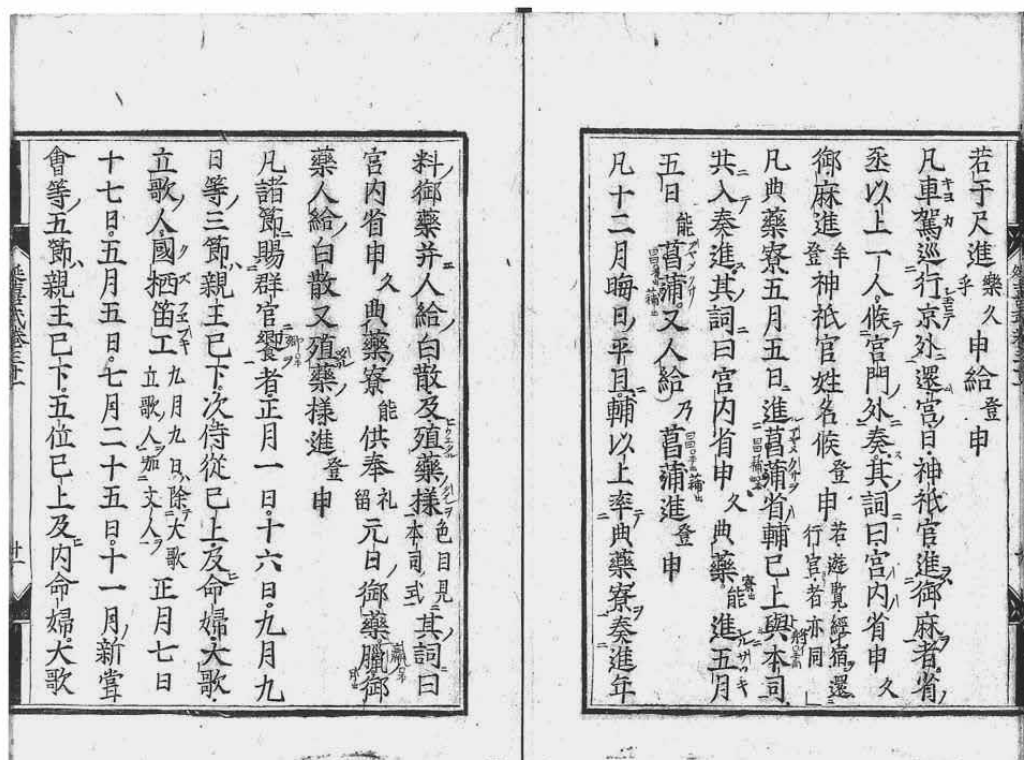 若于尺進 樂久 乎 申給 登 申
凡車駕巡行京外還宮日神祇官進御麻者省
丞以上一人候宮門外奏其詞曰宮內省申 久
御麻進 牟登 神祇官姓名候 登 申 若遊覽經宿還行宮者亦同
凡典藥寮五月五日進菖蒲省輔已上與本司
共入奏進其詞曰宮內省申 久 典藥 能 進五月
五日 能 菖蒲又人給 乃 菖蒲進 登 申
凡十二月晦日平旦輔以上率典藥寮奏進年
料御藥并人給白散及殖藥樣 色目見本司式 其詞曰
宮內省申 久 典藥寮 能 供奉 礼留 元日御藥臘御
藥人給白散又殖藥樣進 登 申
凡諸節賜群官饗者正月一日十六日九月九
日等三節親王已下次侍從已上及命婦大歌
立歌人國栖笛工 九月九日除大歌立歌人加文人 正月七日
十七日五月五日七月二十五日十一月新嘗
會等五節親王已下五位已上及內命婦大歌